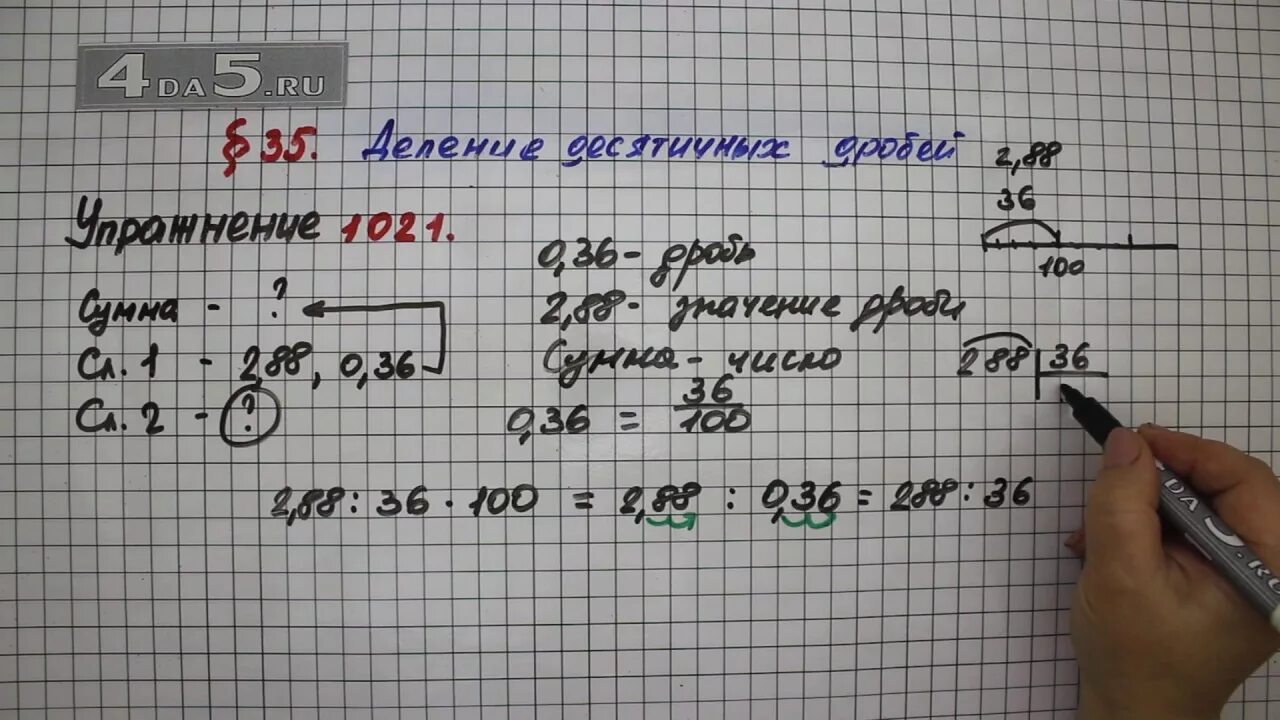 4DA5.RU
§ 35. Деление десятичных дробей
Упражнение 1021.
Сумма - ?
Сл. 1 - 2,88, 0,36
Сл. 2 - ?
0,36 - дробь
2,88 - значение дроби
Сумма - число
0,36 = 36/100
2,88
36
100
288 36
2,88 : 36 · 100 = 2,88 : 0,36 = 288 : 36
DA5.RU